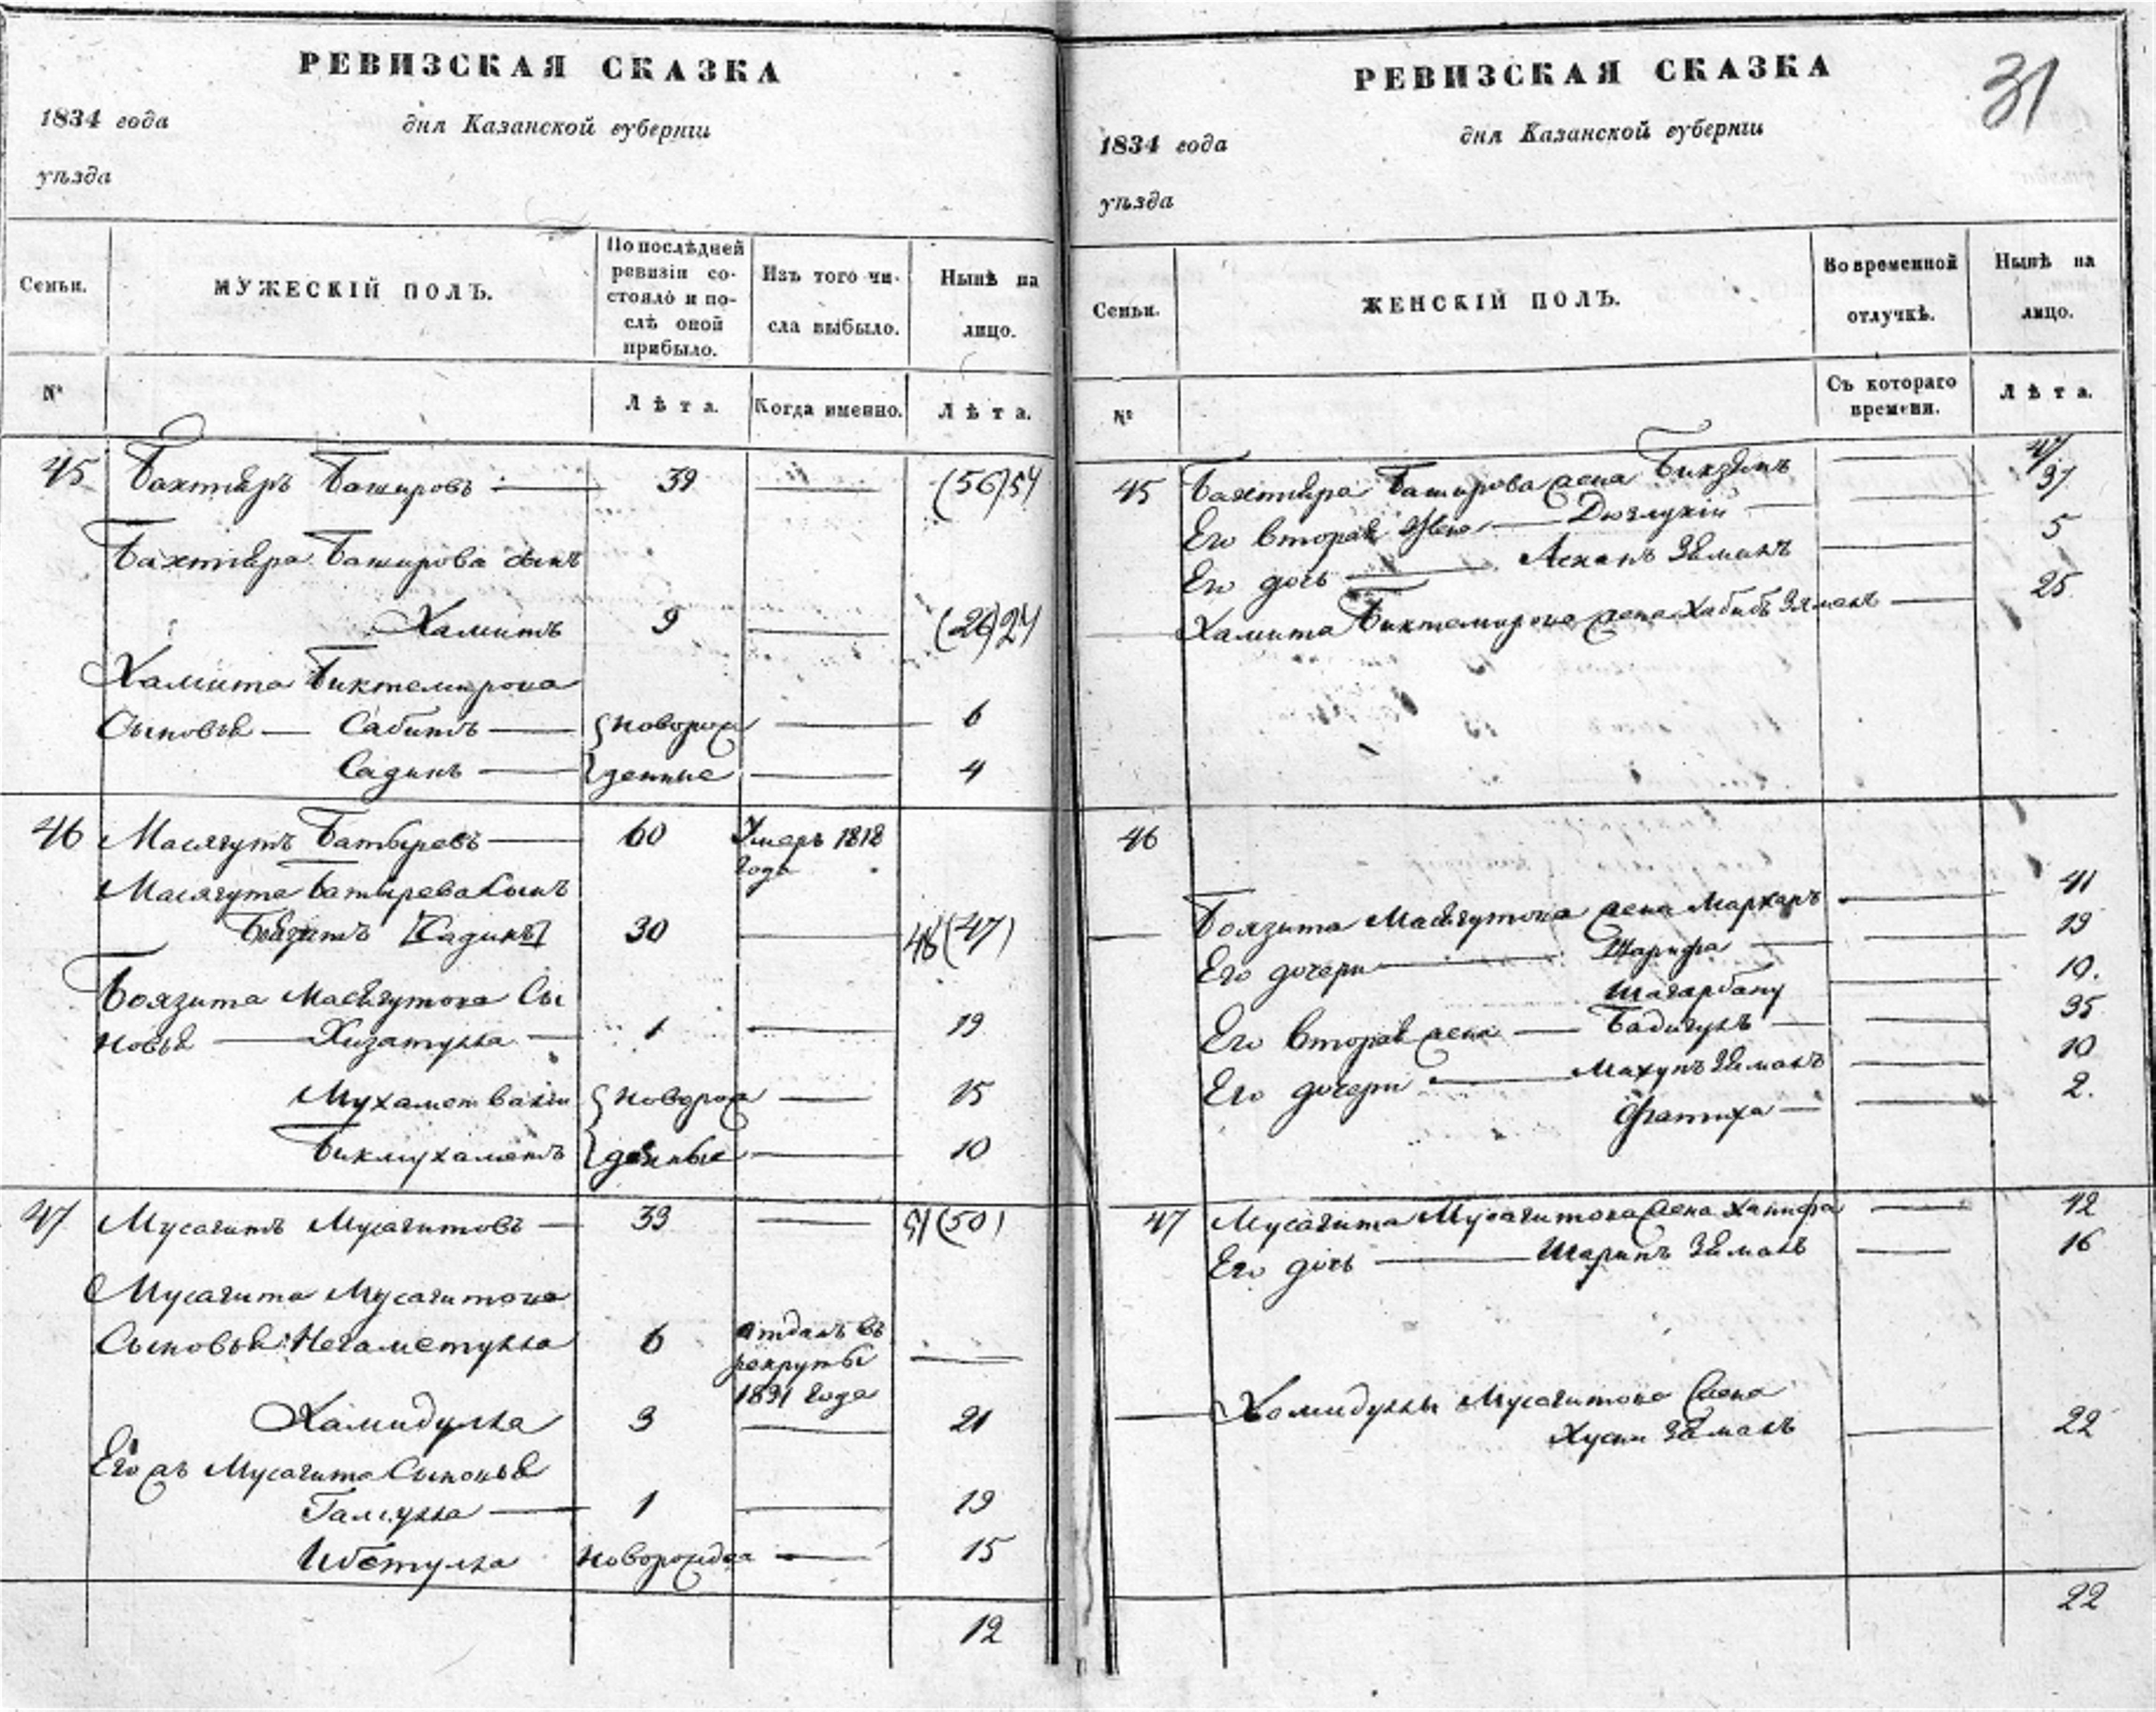 РЕВИЗСКАЯ СКАЗКА
1834 года
дня Казанской губерніи
уѣзда
Семьи.
МУЖЕСКІЙ ПОЛЪ.
По послѣдней
ревизіи со-
стояло и по-
слѣ оной
прибыло.
Изъ того чи-
сла выбыло.
Нынѣ на
лицо.
№
Лѣта.
Когда именно.
Лѣта.
45 Бахтіяръ Башировъ — 39 — (56) 54
Бахтіяра Баширова сынъ
Хамитъ 9 — (26) 24
Хамита Биктемирова
Сыновья — Сабитъ — новорож 6
Садикъ — денные — 4
46 Масягутъ Батыревъ — 60 Умеръ 1818
года
Масягута Батырева сынъ
Баязитъ [Садикъ] 30 — 48 (47)
Боязита Масягутова Сы
новья — Хизатулла — 1 — 19
Мухаметвали новорож — 15
Бикмухаметъ денные — 10
47 Мусагитъ Мусагитовъ — 33 — 51 (50)
Мусагита Мусагитова
Сыновья: Негаметулла 6 отданъ въ
рекруты
1831 года —
Хамидулла 3 — 21
Его жъ Мусагита Сыновья
Галіулла — 1 — 19
Ибетулла новорожден — 15
12
РЕВИЗСКАЯ СКАЗКА
31
1834 года
дня Казанской губерніи
уѣзда
Семьи.
ЖЕНСКІЙ ПОЛЪ.
Во временной
отлучкѣ.
Нынѣ на
лицо.
№
Съ котораго
времени.
Лѣта.
45 Бахтіяра Баширова жена — 47
Его вторая жена — — 37
Его дочь — Зямалъ — 5
Хамита Биктемирова жена Хабибъ Зямалъ — 25
46
Боязита Масягутова жена — 41
Его дочери — Шарифа — 19
Шагарбану — 10.
Его вторая жена — Бадигулъ — 35
Его дочери — Зямалъ — 10
Фатиха — 2.
47 Мусагита Мусагитова жена Ханифа — 42
Его дочь — Шарипъ Зямалъ — 16
Хамидуллы Мусагитова жена
Хусни Зямалъ — 22
22